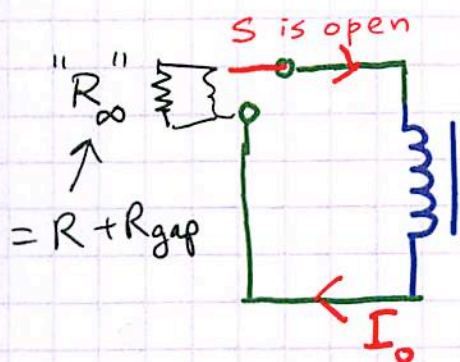 S is open
"R∞"
= R + Rgap
I₀